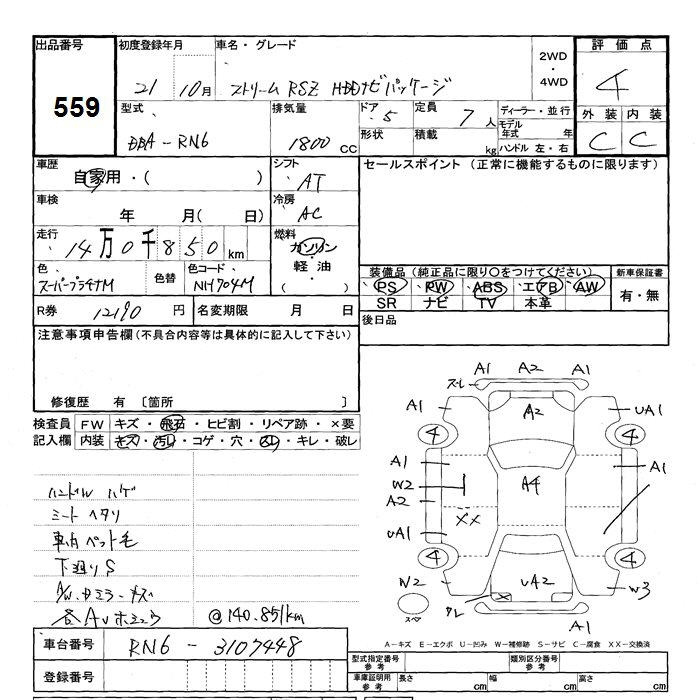 出品番号
559
初度登録年月
21 10月
車名・グレード
ストリーム RSZ HDDナビパッケージ
2WD
・
4WD
評価点
4
外装 内装
C C
型式
DBA-RN6
排気量
1800 CC
ドア 5
形状
定員 7 人
積載 kg
ディーラー・並行
モデル年式 年
ハンドル 左・右
車歴
自家用・( )
シフト
AT
車検
年 月( 日)
冷房
AC
走行
14万0千850km
燃料
ガソリン
・
軽油
( )
色
スーパープラチナM
色替
色コード
NH704M
R券 12190 円
名変期限 月 日
セールスポイント (正常に機能するものに限ります)
装備品(純正品に限り○をつけてください)
PS PW ABS エアB AW
SR ナビ TV 本革
新車保証書
有・無
後日品
注意事項申告欄(不具合内容等は具体的に記入して下さい)
修復歴 有 〔箇所 〕
検査員記入欄
FW キズ・飛石・ヒビ割・リペア跡・×要
内装 キズ・汚れ・コゲ・穴・スレ・キレ・破レ
ハンドル ハゲ
シート ヘタリ
車内 ペット毛
下廻りS
A/W.Dミラーキズ
@140.851km
A1 A2 A1
スーレ
A1 A2 UA1
4 4
A1 A1
W2 A4
A2
XX
UA1
4 4
W2 UA2 W3
ワレ
スペア
A1
A-キズ E-エクボ U-凹み W-補修跡 S-サビ C-腐食 XX-交換済
車台番号 RN6 - 3107448
登録番号
型式指定番号 参考
類別区分番号 参考
車庫証明用 参考
長さ cm 幅 cm 高さ cm